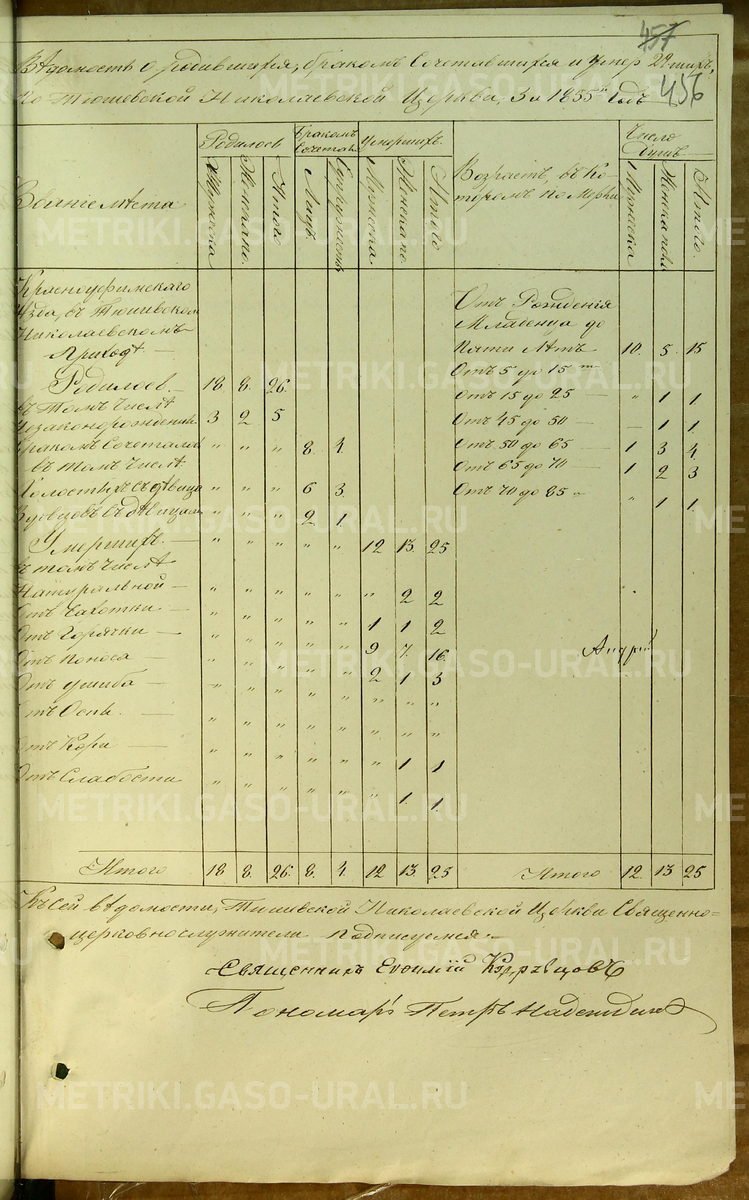 457
456
Вѣдомость о родившихся, бракомъ Сочетавшихся и умер
по Тюшевской Николаевской Церкви, За 1855й Годъ
Званіе мѣста
Родилось
Мужеска
Женскаго
Итого
Бракомъ Сочетал
Лицъ
Супружествъ
Умершихъ
Мужеска
Женскаго
Итого
Возрастъ, въ ко-
торомъ померли
Число Душъ
Мужеска
Женска пола
Итого.
Красноуфимскаго
Уѣзда, въ Тюшевскомъ
Николаевскомъ
Приходѣ —
Родилось — 18 8. 26.
въ томъ числѣ
Незаконорожденных 3 2 5
Бракомъ Сочеталось " " " 8. 4.
въ томъ числѣ
Холостыхъ съ дѣвицам " " " 6 3
Вдовцовъ съ дѣвицами " " " 2 1
Умершихъ — " " " " " 12 13. 25
въ томъ числѣ
Натуральной — " " " " " " 2 2
Отъ Чахотки — " " " " " 1 1 2
Отъ Горячки — " " " " " 9 7. 16.
Отъ Поноса — " " " " " 2 1 3
Отъ ушиба — " " " " " " " "
Отъ Оспы — " " " " " " " "
Отъ Кори — " " " " " " 1 1
Отъ Слабости " " " " " " 1. 1.
Итого 18 8. 26. 8. 4. 12 13 25
Отъ Рожденія
Младенца до
Пяти Лѣтъ 10. 5. 15
Отъ 5 до 15
Отъ 15 до 25 — " 1 1
Отъ 45 до 50 — — 1 1
Отъ 50 до 65 — 1 3 4
Отъ 65 до 70 — 1 2 3
Отъ 70 до 85 " " 1 1
Итого 12. 13 25
Къ Сей вѣдомости, Тюшевской Николаевской Церкви Священно-
церковнослужители подписуемся:
Священникъ Евфимій
Пономарь Петръ Надеждинъ
METRIKI.GASO-URAL.RU